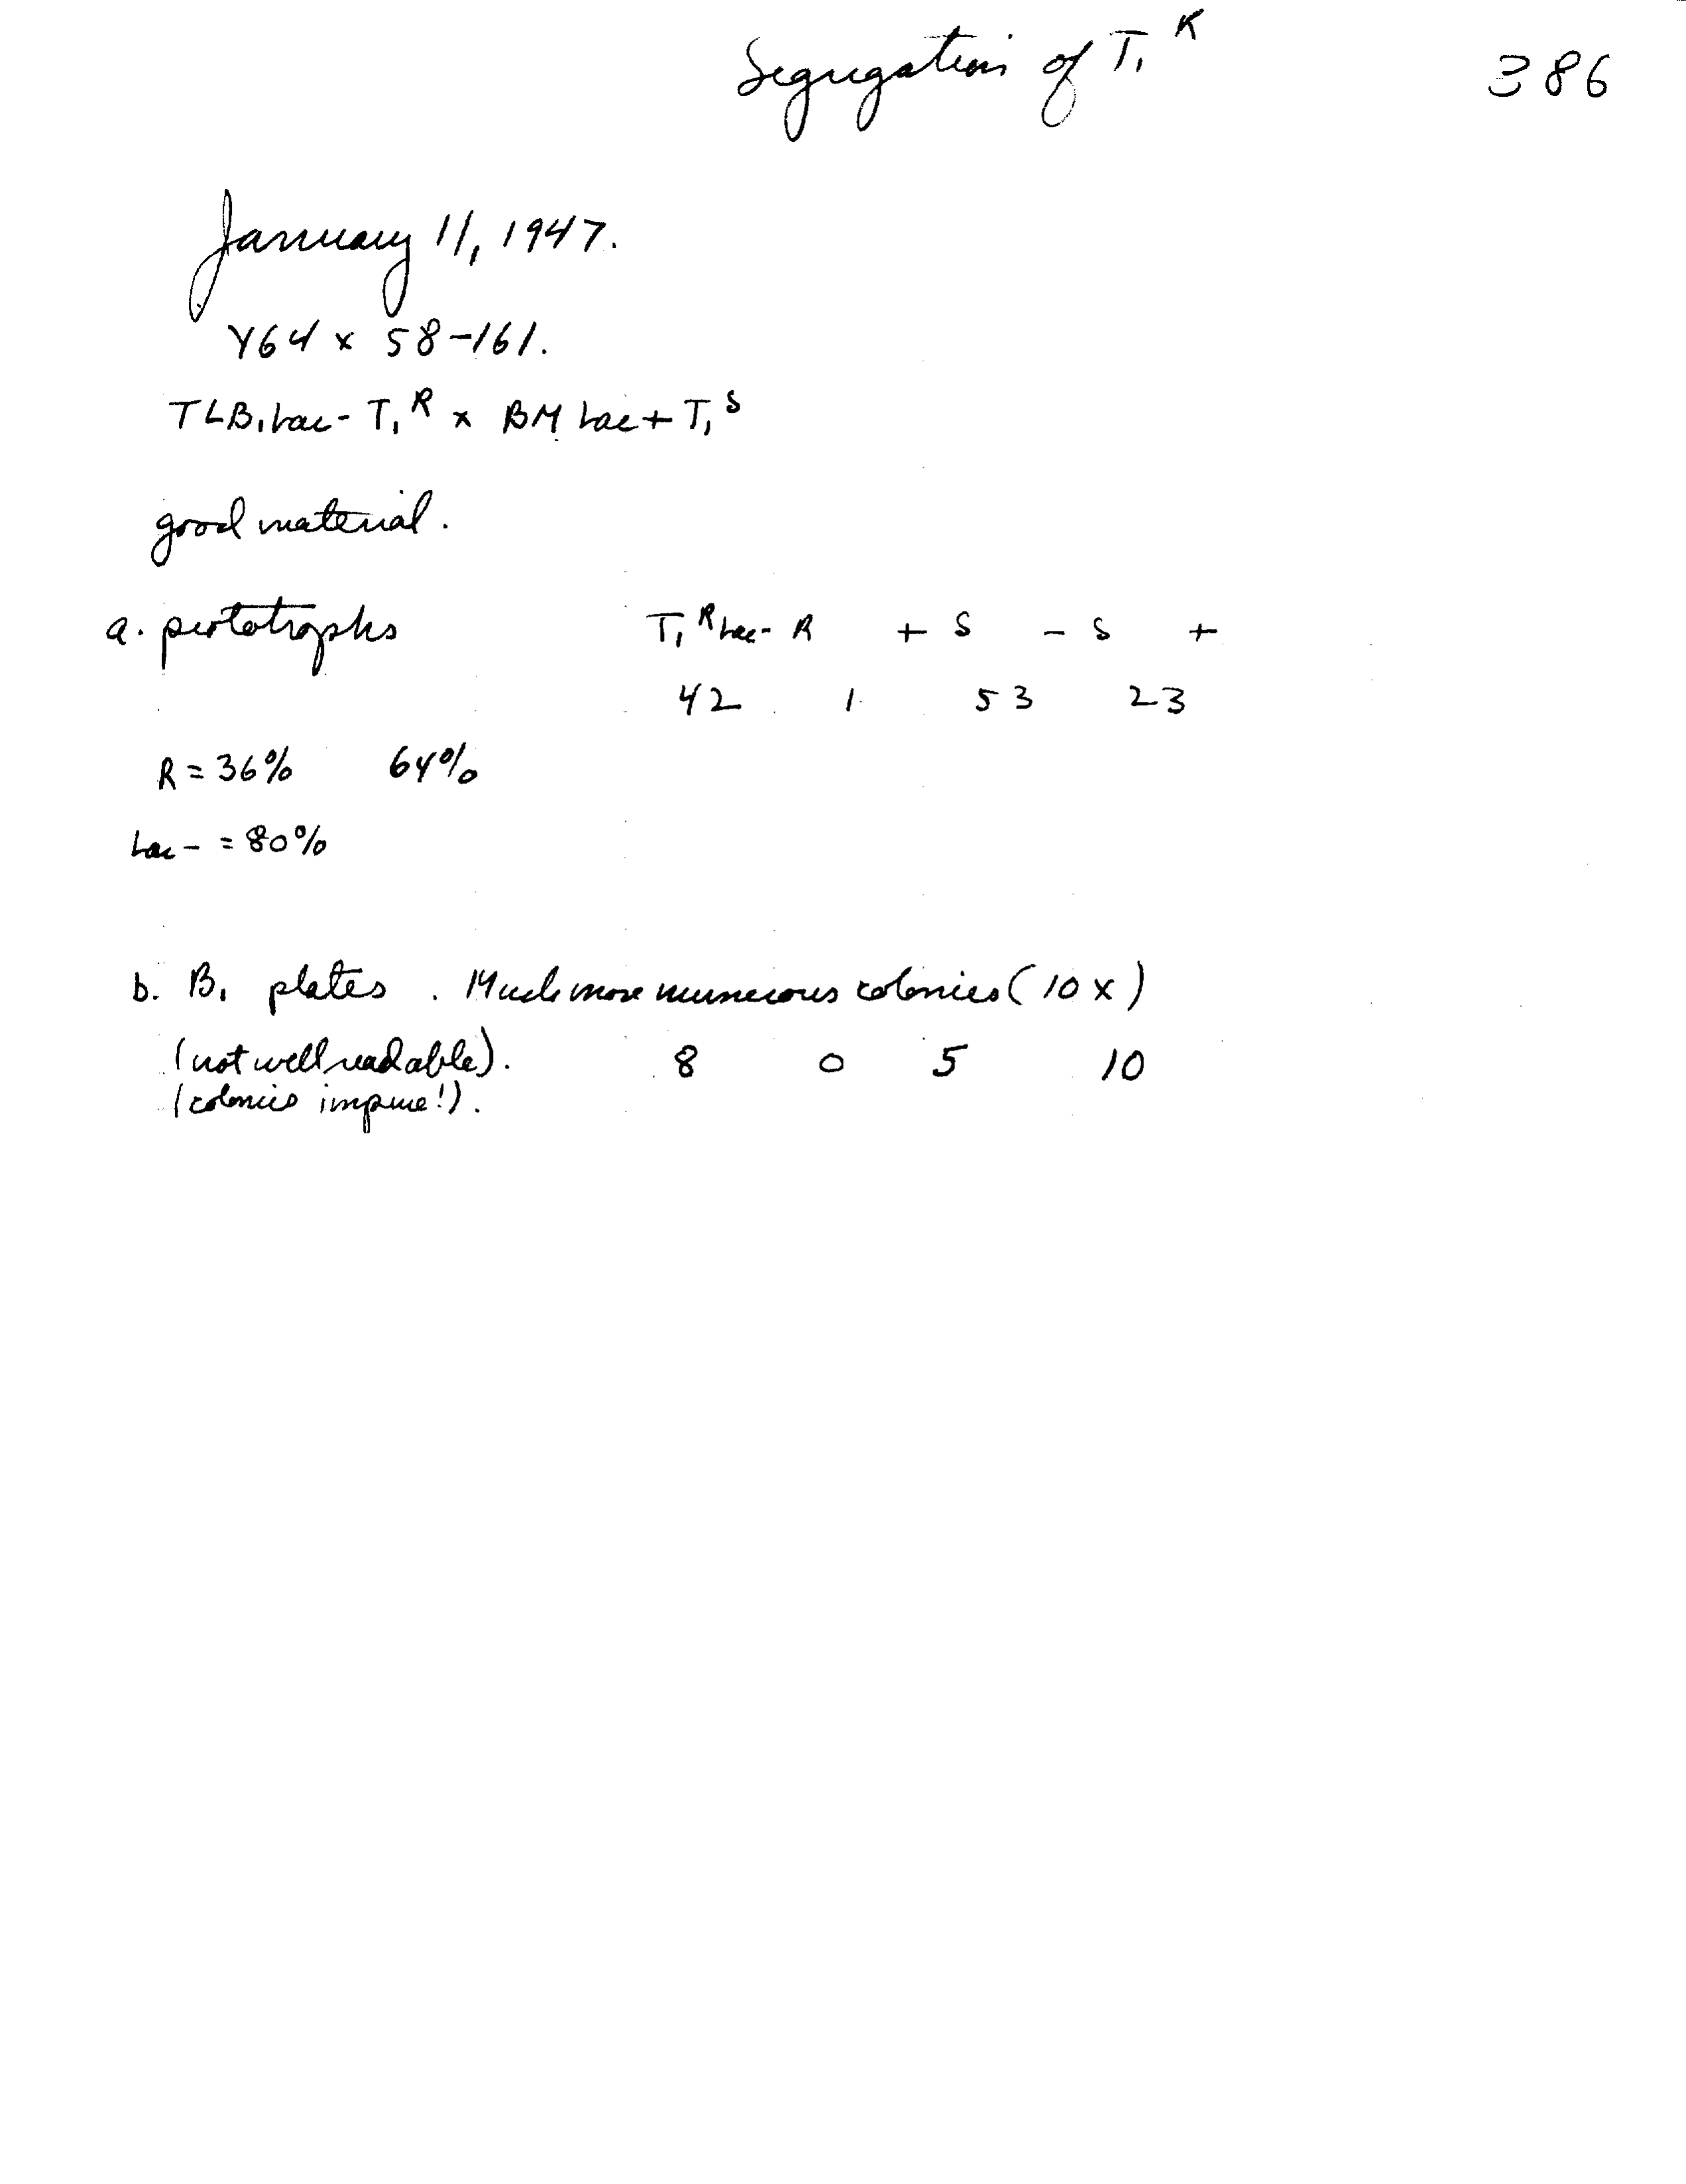 Segregation of T₁ᴿ
386
January 11, 1947.
Y64 x 58-161.
TLB₁Lac- T₁ᴿ x BM Lac+ T₁ˢ
good material.
a. prototrophs T₁ᴿLac- R + S - S +
42 1 53 23
R = 36% 64%
Lac- = 80%
b. B₁ plates. Much more numerous colonies (10 x)
(not well readable). 8 0 5 10
(colonies impure!).